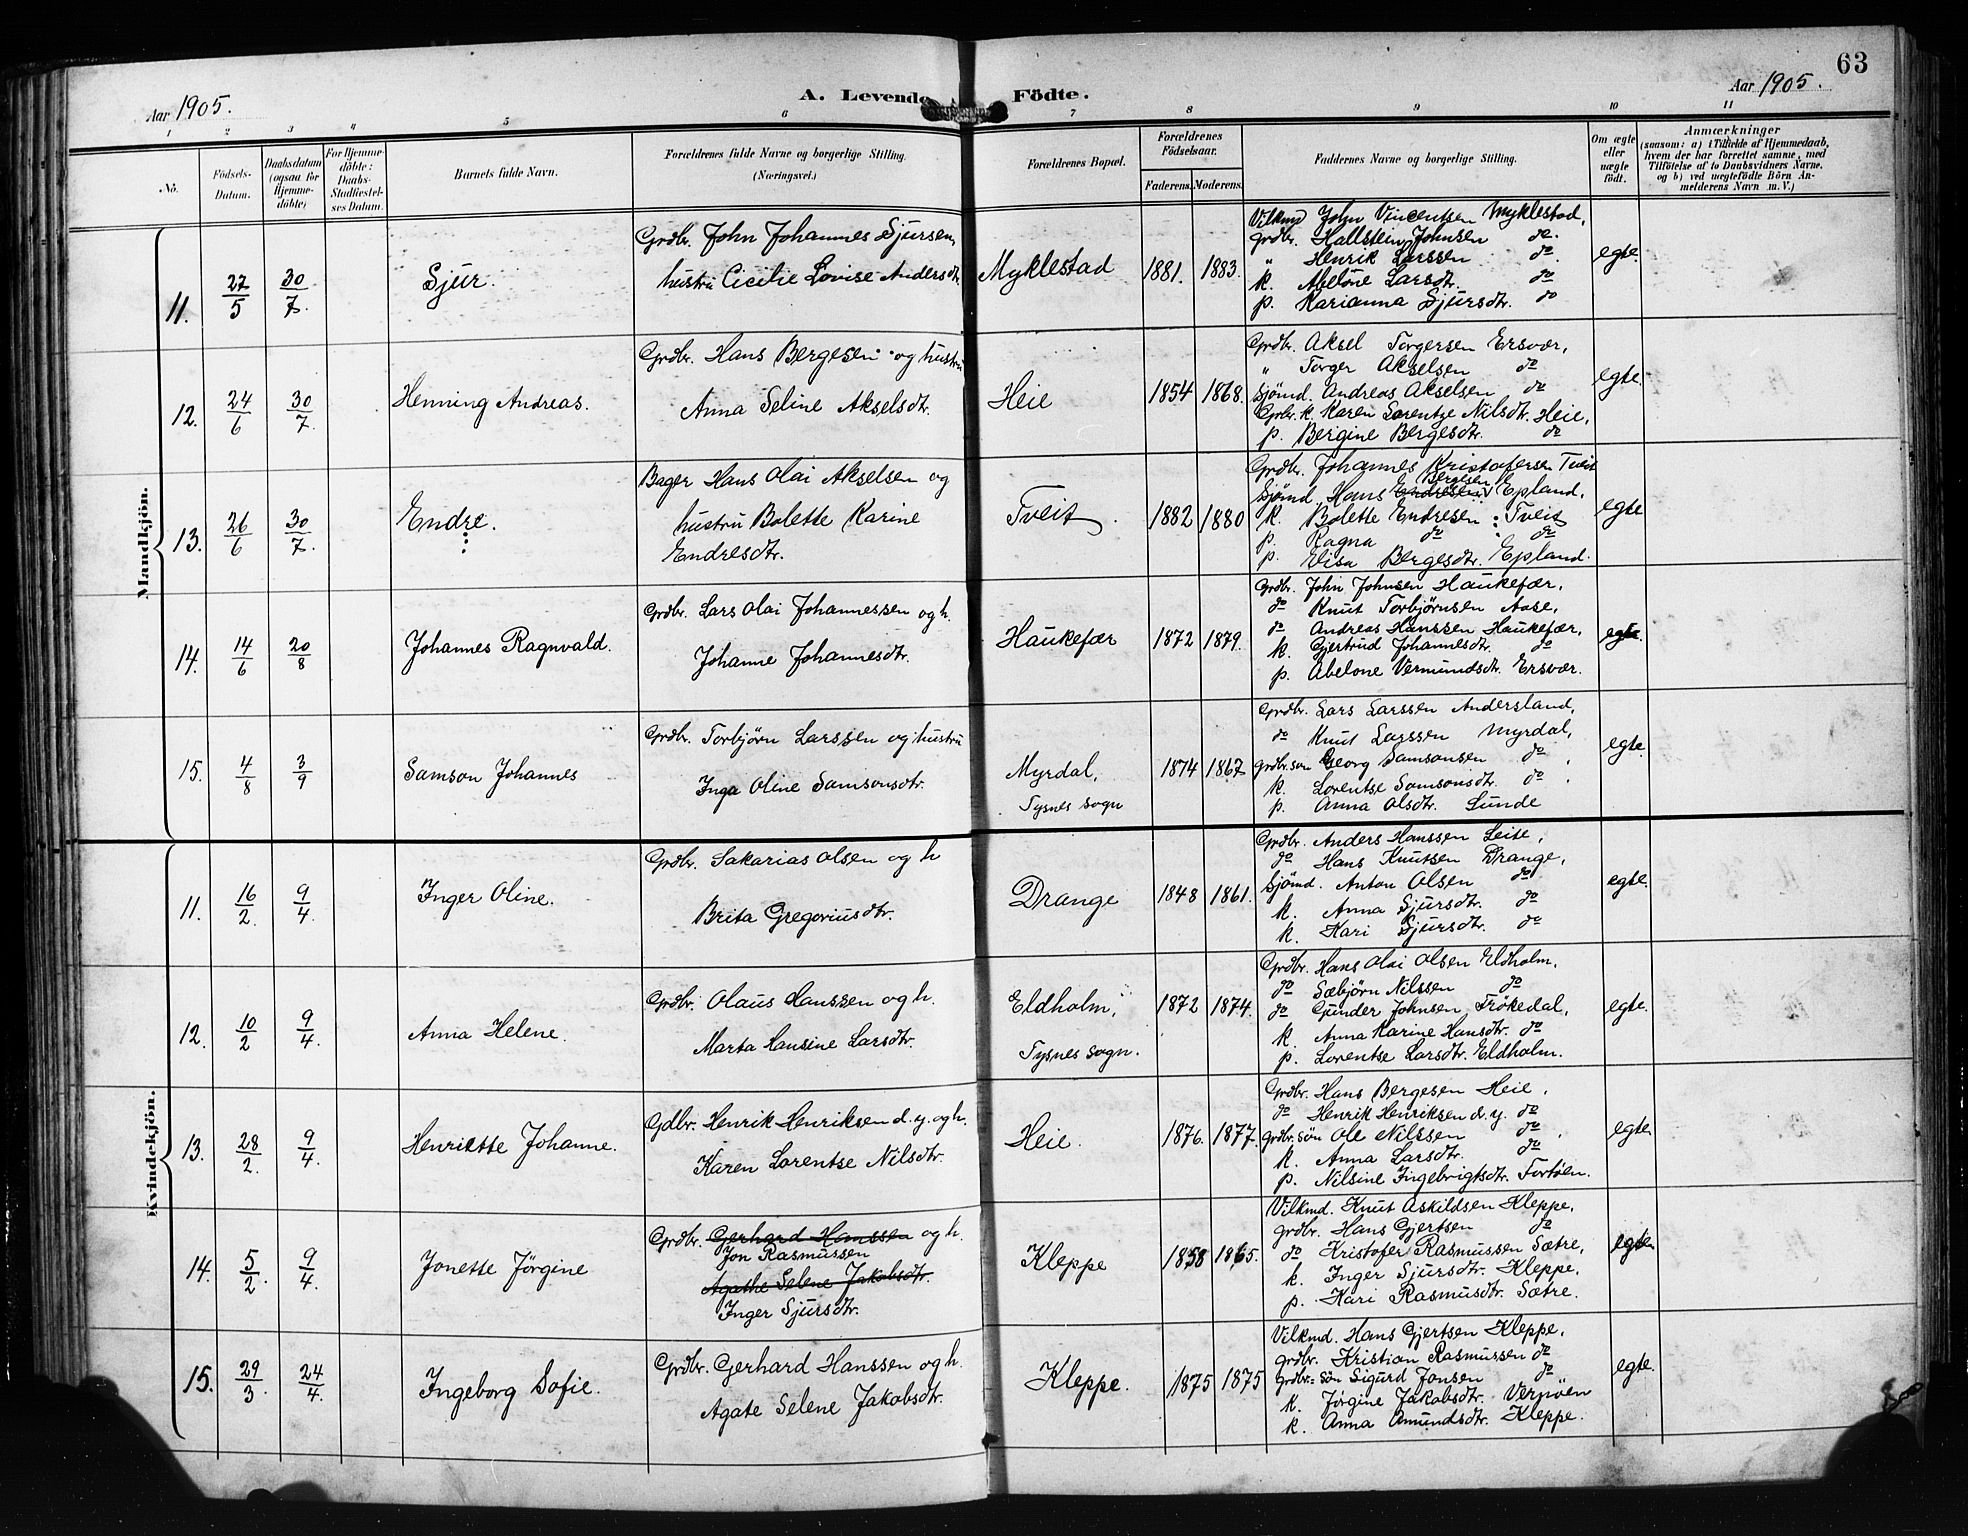 63
Aar 1905.
A. Levende Födte.
Aar 1905.
1 2 3 4 5 6 7 8 9 10 11
No.
Födsels-
Datum.
Daabsdatum
(ogsaa for
Hjemme-
döbte)
For Hjemme-
döbte:
Daabs-
Stadfæstel-
ses Datum.
Barnets fulde Navn.
Forældrenes fulde Navne og borgerlige Stilling.
(Næringsvei.)
Forældrenes Bopæl.
Forældrenes
Födselsaar.
Faderens. Moderens.
Faddernes Navne og borgerlige Stilling.
Om ægte
eller
uægte
födt.
Anmærkninger
(saasom: a) i Tilfælde af Hjemmedaab,
hvem der har forrettet samme, med
Tilföielse af to Daabsvidners Navne,
og b) ved uægtefödte Börn An-
melderens Navn m. V.)
Mandkjön.
11. 27/5 30/7. Sjur.
Grdbr. John Johannes Sjursen,
hustru Cicilie Lovise Andersdt.
Myklestad 1881. 1883.
Vilkmd John Vincentsen Myklestad,
Grdbr. Hallstein Johnsen do.
" Henrik Larssen do.
k. Abelone Larsdtr. do
p. Marianna Sjursdtr. do
egte.
12. 24/6 30/7. Henning Andreas.
Grdbr. Hans Bergesen og hustru
Anna Seline Akselsdtr.
Heie 1854 1868.
Grdbr. Aksel Torgersen Ersvær,
" Torger Akselsen do
Sjömd. Andreas Akselsen do
Grbr. k. Karen Lorentze Nilsdtr. Heie,
p. Bergine Bergesdtr. do
egte.
13. 26/6 30/7. Endre.
Bager Hans Olai Akselsen og
hustru Bolette Karine
Endresdtr.
Tveit. 1882 1880
Grdbr. Johannes Kristofersen Tveit
Bergesen
Sjömd. Hans Endresen Epland,
k. Bolette Endresen Tveit
p. Ragna do do
p. Elisa Bergesdtr. Epland.
egte
14. 14/6 20/8 Johannes Ragnvald.
Grdbr. Lars Olai Johannessen og h.
Johanne Johannesdtr.
Haukefær 1872 1879.
Grdbr. John Johnsen Haukefær,
do Knut Torbjörnsen Aase,
do Andreas Hanssen Haukefær,
k. Gjertrud Johannesdtr. do
p. Abelone Vermundsdtr. Ersvær.
egte.
15. 4/8 3/9 Samson Johannes
Grdbr. Torbjörn Larssen og hustru
Inga Oline Samsonsdtr.
Myrdal,
Tysnes sogn
1874 1867
Grdbr. Lars Larssen Andersland,
do Knut Larssen Myrdal,
grdbr. søn Georg Samsonsen do
k. Lorentse Samsonsdtr. do
p. Anna Olsdtr. Lunde
egte.
Kvindekjön.
11. 16/2. 9/4. Inger Oline.
Grdbr. Sakarias Olsen og h
Brita Gregoriusdtr.
Drange 1848 1861.
Grdbr. Anders Hanssen Leite,
do Hans Knutsen Drange,
Sjömd. Anton Olsen do
k. Anna Sjursdtr. do
k. Kari Sjursdtr. do
egte.
12. 10/2 9/4. Anna Helene.
Grdbr. Olaus Hanssen og h.
Marta Hansine Larsdtr.
Eldholm,
Tysnes sogn.
1872 1874.
Grdbr. Hans Olai Olsen Eldholm,
do Sæbjörn Nilssen do
do Gunder Johnsen Frökedal,
k. Anna Karine Hansdtr. do
p. Lorentse Larsdtr. Eldholm.
egte.
13. 28/2. 9/4. Henriette Johanne.
Gdbr. Henrik Henriksen d.y. og h.
Karen Lorentse Nilsdtr.
Heie. 1876. 1877.
Grdbr. Hans Bergesen Heie,
do Henrik Henriksen d.y. do
Grdbr. søn Ole Nilssen do
k. Anna Larsdtr. do
p. Nilsine Ingebrigtsdtr. Fortøen.
egte.
14. 5/2. 9/4. Jonette Jörgine
Grdbr. Gerhard Hanssen og h.
Jon Rasmussen
Agathe Selene Jakobsdtr.
Inger Sjursdtr.
Kleppe 1858 1865.
Vilkmd. Knut Askildsen Kleppe,
grdbr. Hans Gjertsen do
do Kristofer Rasmussen Sætre,
k. Inger Sjursdtr. Kleppe,
p. Kari Rasmusdtr. Sætre.
egte
15. 29/3. 24/4. Ingeborg Sofie.
Grdbr. Gerhard Hanssen og h.
Agate Selene Jakobsdtr.
Kleppe. 1875 1875
Vilkmd. Hans Gjertsen Kleppe,
grdbr. Kristian Rasmussen do
Grdbr. søn Sigurd Jonsen do
k. Jørgine Jakobsdtr. Verpöen
k. Anna Amundsdtr. Kleppe.
egte.